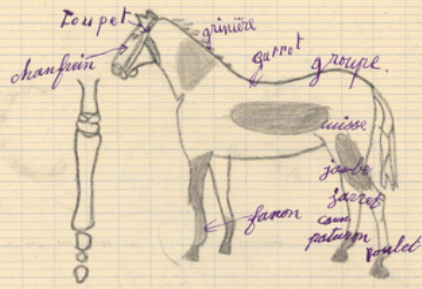 toupet
crinière
garrot
groupe.
chanfrein
cuisse
jambe
jarret
fanon
canon
paturon
boulet